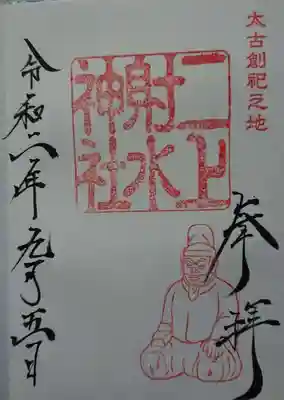 太古創祀之地
奉拝
二上
射水
神社
令和六年九月五日